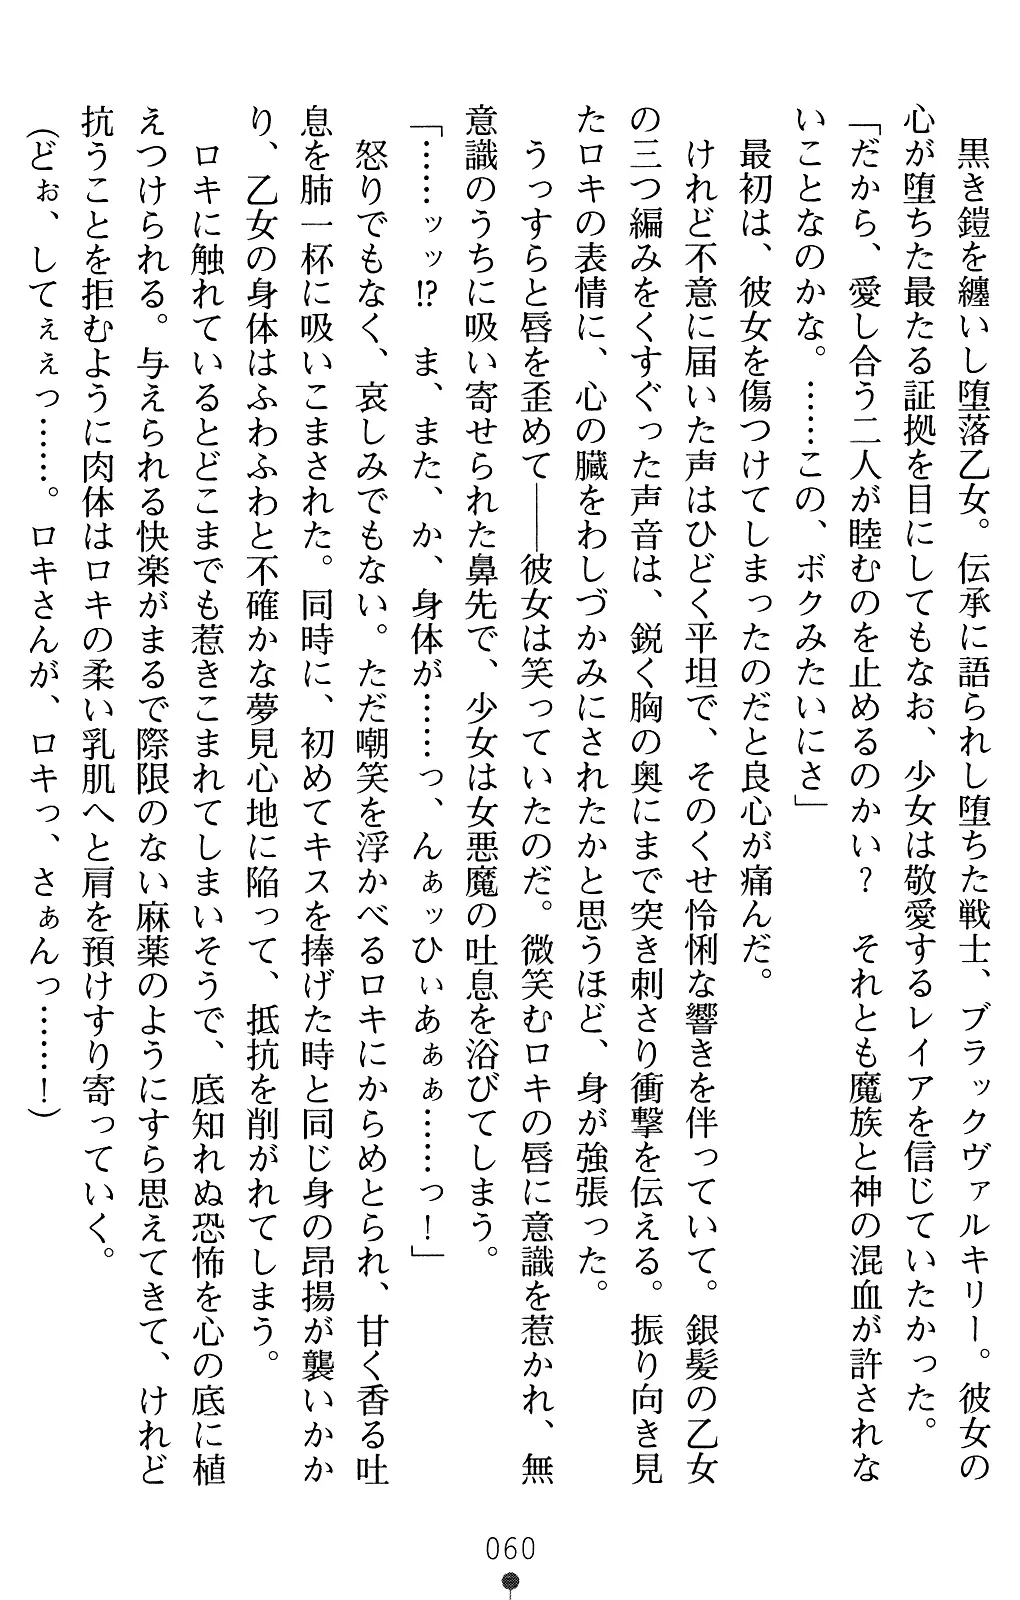 黒き鎧を纏いし堕落乙女。伝承に語られし堕ちた戦士、ブラックヴァルキリー。彼女の
心が堕ちた最たる証拠を目にしてもなお、少女は敬愛するレイアを信じていたかった。
「だから、愛し合う二人が睦むのを止めるのかい？　それとも魔族と神の混血が許されな
いことなのかな。……この、ボクみたいにさ」
最初は、彼女を傷つけてしまったのだと良心が痛んだ。
けれど不意に届いた声はひどく平坦で、そのくせ怜悧な響きを伴っていて。銀髪の乙女
の三つ編みをくすぐった声音は、鋭く胸の奥にまで突き刺さり衝撃を伝える。振り向き見
たロキの表情に、心の臓をわしづかみにされたかと思うほど、身が強張った。
うっすらと唇を歪めて――彼女は笑っていたのだ。微笑むロキの唇に意識を惹かれ、無
意識のうちに吸い寄せられた鼻先で、少女は女悪魔の吐息を浴びてしまう。
「……ッッ!?　ま、また、か、身体が……っ、んぁッひぃあぁぁ……っ！」
怒りでもなく、哀しみでもない。ただ嘲笑を浮かべるロキにからめとられ、甘く香る吐
息を肺一杯に吸いこまされた。同時に、初めてキスを捧げた時と同じ身の昂揚が襲いかか
り、乙女の身体はふわふわと不確かな夢見心地に陥って、抵抗を削がれてしまう。
ロキに触れているとどこまでも惹きこまれてしまいそうで、底知れぬ恐怖を心の底に植
えつけられる。与えられる快楽がまるで際限のない麻薬のようにすら思えてきて、けれど
抗うことを拒むように肉体はロキの柔い乳肌へと肩を預けすり寄っていく。
（どぉ、してぇぇっ……。ロキさんが、ロキっ、さぁんっ……！）
060